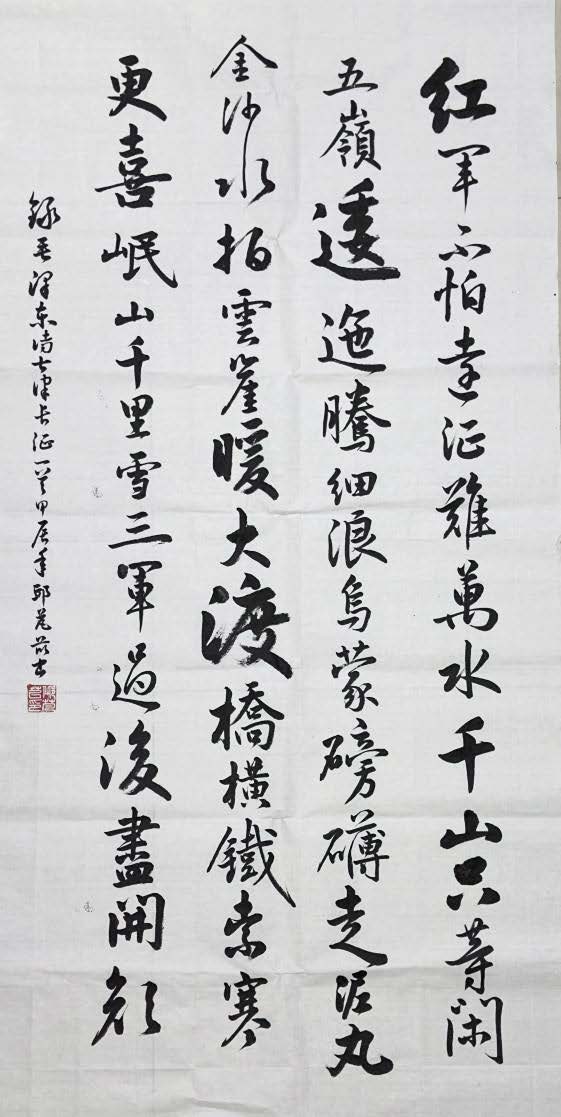 红军不怕遠征難萬水千山只等閑
五嶺逶迤騰细浪烏蒙磅礴走泥丸
金沙水拍雲崖暖大渡橋橫鐵索寒
更喜岷山千里雪三軍過後盡開颜
録毛泽东诗七律长征一首甲辰年邱书